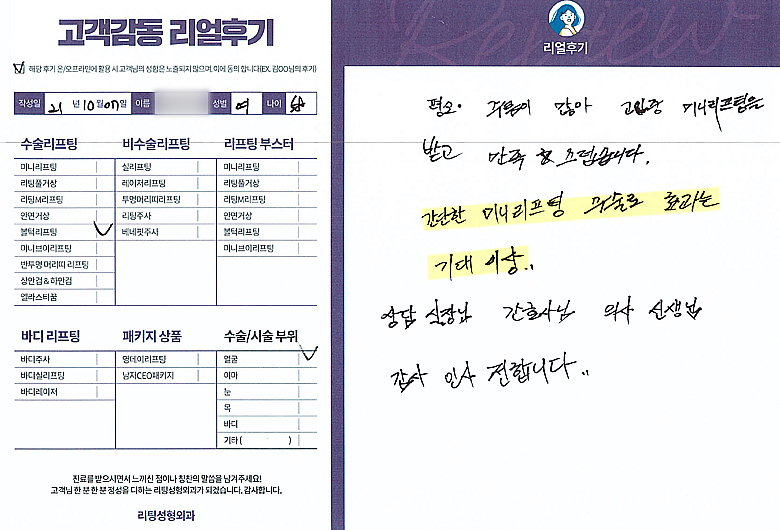 고객감동 리얼후기
해당 후기 온/오프라인에 활용 시 고객님의 성함은 노출되지 않으며, 이에 동의 합니다(EX. 김OO님의 후기)
작성일 21 년 10 월 07 일 이름 성별 여 나이
수술리프팅
미니리프팅
리팅풀거상
리팅M리프팅
안면거상
볼턱리프팅
미니브이리프팅
반투명 머리띠 리프팅
상안검 & 하안검
엘라스티꿈
비수술리프팅
실리프팅
레이저리프팅
투명머리띠리프팅
리팅주사
비네핏주사
리프팅 부스터
미니리프팅
리팅풀거상
리팅M리프팅
안면거상
볼턱리프팅
미니브이리프팅
바디 리프팅
바디주사
바디실리프팅
바디레이저
패키지 상품
영데이리프팅
남자CEO패키지
수술/시술 부위
얼굴
이마
눈
목
바디
기타 ( )
진료를 받으시면서 느끼신 점이나 칭찬의 말씀을 남겨주세요!
고객님 한 분 한 분 정성을 다하는 리팅성형외과가 되겠습니다. 감사합니다.
리팅성형외과
Review
리얼후기
평소 주름이 많아 고민중 미니리프팅을
받고 만족 스럽습니다.
간단한 미니리프팅 수술로 효과는
기대 이상..
상담 실장님 간호사님 의사 선생님
감사 인사 전합니다..